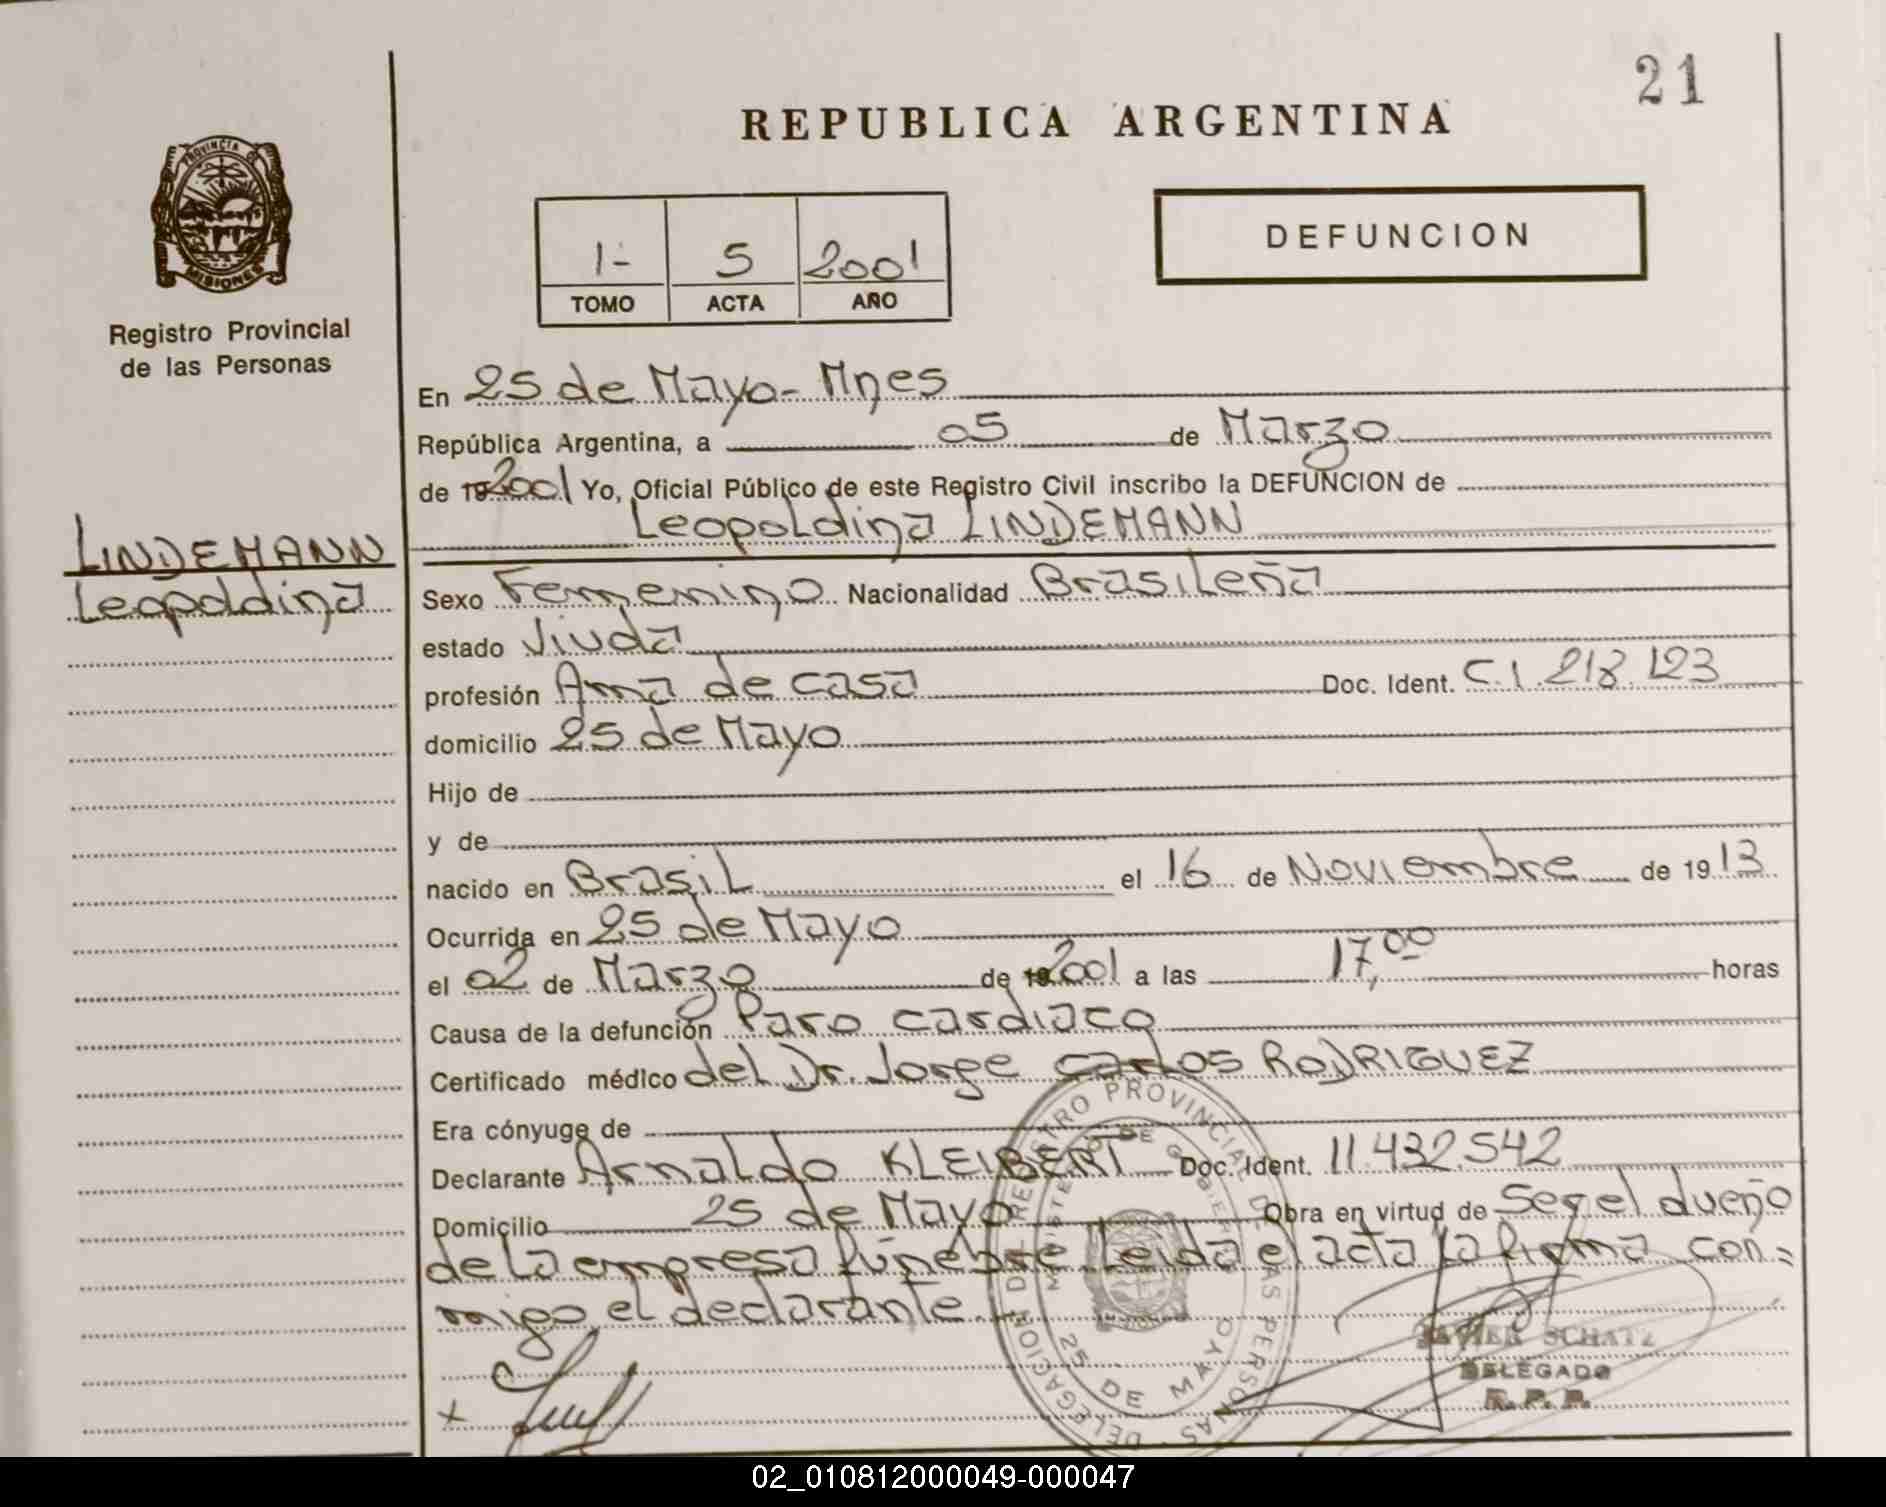 21
REPUBLICA ARGENTINA
PROVINCIA DE
MISIONES
Registro Provincial
de las Personas
DEFUNCION
1- 5 2001
TOMO ACTA AÑO
En 25 de Mayo - Mnes
República Argentina, a 05 de Marzo
de 19 2001 Yo, Oficial Público de este Registro Civil inscribo la DEFUNCION de
Leopoldina LINDEMANN
LINDEMANN
Leopoldina
Sexo Femenino Nacionalidad Brasileña
estado Viuda
profesión Ama de casa Doc. Ident. C.I. 218.123
domicilio 25 de Mayo
Hijo de
y de
nacido en Brasil el 16 de Noviembre de 1913
Ocurrida en 25 de Mayo
el 02 de Marzo de 19 2001 a las 17,00 horas
Causa de la defunción Paro cardiaco
Certificado médico del Dr. Jorge Carlos RODRIGUEZ
Era cónyuge de
Declarante Arnaldo KLEIBERT Doc. Ident. 11.432.542
Domicilio 25 de Mayo Obra en virtud de ser el dueño
de la empresa fúnebre Leida el acta la firma con=
migo el declarante.-
DELEGACION DEL REGISTRO PROVINCIAL DE LAS PERSONAS
MINISTERIO DE GOBIERNO
25 DE MAYO
JAVIER SCHATZ
DELEGADO
R.P.P.
x
02_010812000049-000047